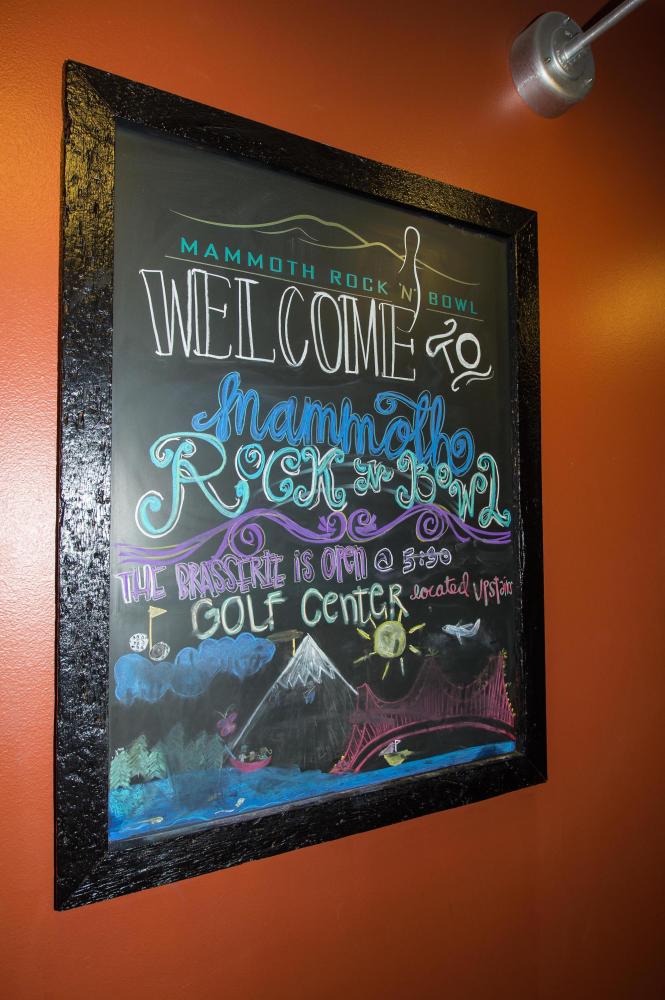 MAMMOTH ROCK 'N' BOWL
WELCOME TO
Mammoth
ROCK 'N' BOWL
THE BRASSERIE is OPEN @ 5:30
GOLF CENTER located UPstairs